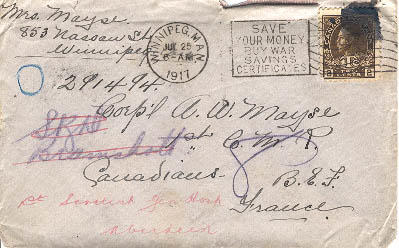 Mrs. Mayse
853 Nassau St.
Winnipeg
WINNIPEG, MAN.
JUL 25
6-AM
1917
SAVE
YOUR MONEY
BUY WAR
SAVINGS
CERTIFICATES
291494.
Corp'l A. W. Mayse
1st C. M. R.
Bramshott
Canadians
B.E.F.
France
Gen Hosp
Aberdeen